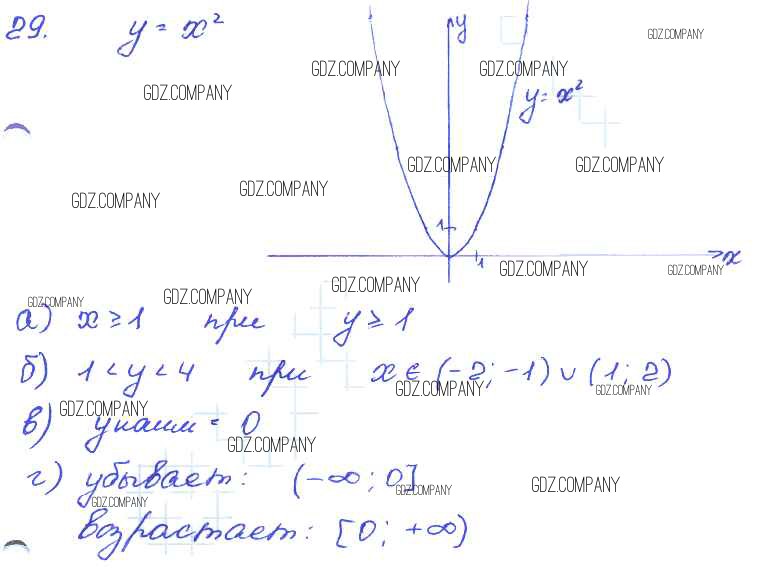 29. y = x²
y
GDZ.COMPANY
GDZ.COMPANY GDZ.COMPANY
GDZ.COMPANY
y = x²
GDZ.COMPANY GDZ.COMPANY
GDZ.COMPANY
GDZ.COMPANY
1
1
x
GDZ.COMPANY GDZ.COMPANY
GDZ.COMPANY
GDZ.COMPANY GDZ.COMPANY
а) x ≥ 1 при y ≥ 1
б) 1 < y < 4 при x ∈ (-2; -1) ∪ (1; 2)
GDZ.COMPANY GDZ.COMPANY
GDZ.COMPANY
в) y наим = 0
GDZ.COMPANY
г) убывает: (-∞; 0]
GDZ.COMPANY GDZ.COMPANY
GDZ.COMPANY
возрастает: [0; +∞)